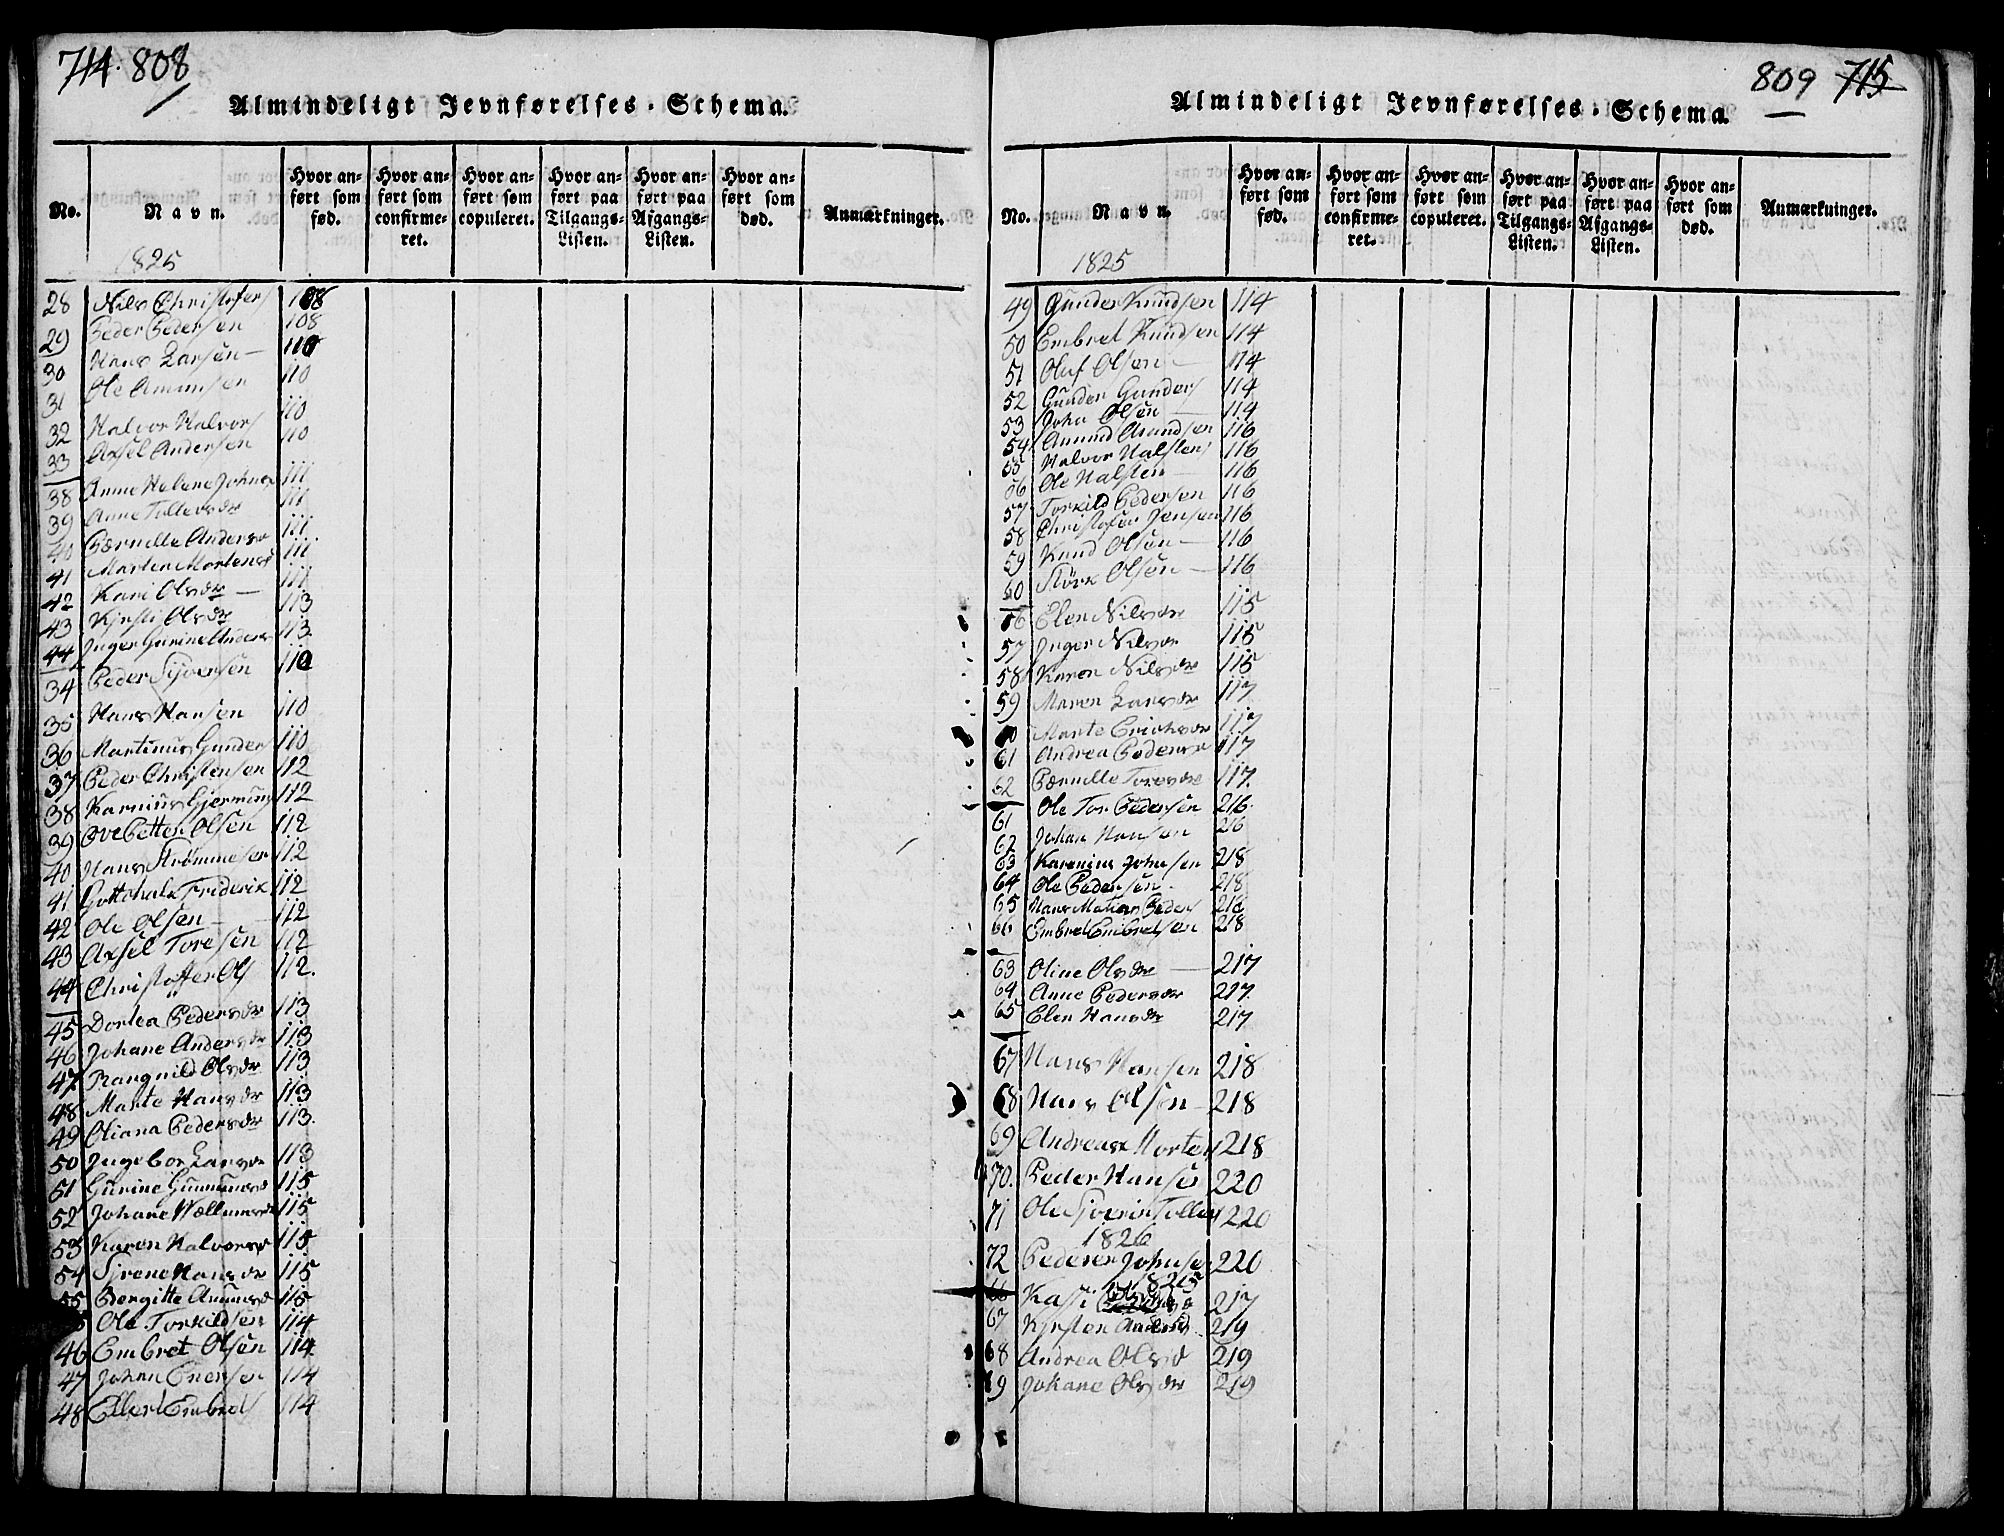 714. 808
Almindeligt Jevnførelses-Schema.
No.
Navn.
Hvor anført som fød.
Hvor anført som confirmeret.
Hvor anført som copuleret.
Hvor anført paa Tilgangs-Listen.
Hvor anført paa Afgangs-Listen.
Hvor anført som død.
Anmærkninger.
1825
28 Nils Christofers 108
29 Peder Pedersen 108
30 Hans Larsen 110
31 Ole Amunsen 110
32 Halvor Halvors 110
33 Axsel Andersen 110
38 Anne Helene Johns 111
39 Anne Tollevsdr 111
40 Pærnille Andersdr 111.
41 Marten Mortensd 111
42 Kari Olsdr 111
43 Kjrsti Olsdr 113
44 Inger Gurine Anders 113.
34 Peder Sjversen 110
35 Hans Hansen 110
36 Martinus Gunders 110
37 Peder Christensen 112
38 Karnius Gjermuns 112
39 Ove Petter Olsen 112
40 Hans Strømmesen 112
41 Gottchalk Friderik 112
42 Ole Olsen 112
43 Axsel Toresen 112
44 Christoffer Ols 112.
45 Dortea Pedersdr 113
46 Johane Andersdr 113
47 Rangnild Olsdr 113
48 Marte Hansdr 113
49 Oliana Pedersdr 113.
50 Ingebor Larsdr 113
51 Gurine Gunnunsd 115
52 Johane Wællumsd 115
53 Karen Halvorsd 115
54 Sjrene Hansdr 115
55 Bergitte Amunsd 115
Ole Torkildsen 114
46 Embret Olsen 114.
47 Johan Enersen 114
48 Ellert Embrets 114
809 715
Almindeligt Jevnførelses-Schema.
No.
Navn.
Hvor anført som fød.
Hvor anført som confirmeret.
Hvor anført som copuleret.
Hvor anført paa Tilgangs-Listen.
Hvor anført paa Afgangs-Listen.
Hvor anført som død.
Anmærkninger.
1825
49 Gunder Knudsen 114
50 Embret Knudsen 114
51 Oluf Olsen 114
52 Gunder Gunders 114
53 John Olsen 114
54 Amund Amundsen 116
55 Halvor Halstens 116
56 Ole Halsten 116
57 Torkild Pedersen 116
58 Christofer Jensen 116
59 Knud Olsen 116
60 Størk Olsen 116
56 Elen Nilsdr 115
57 Inger Nilsdr 115
58 Karen Nilsdr 115
59 Maren Larsdr 117
60 Marte Erichsdr 117
61 Andrea Pedersdr 117
62 Pærnille Toresdr 117.
61 Ole Tor Pedersen 216.
62 Johan Hansen 216
63 Karenius Johnsen 218
64 Ole Pedersen 218
65 Hans Matias Peders 218
66 Embret Embretsen 218
63 Oline Olsdr 217
64 Anne Pedersdr 217.
65 Elen Hansdr 217
67 Hans Hansen 218
68 Hans Olsen 218
69 Andreas Morten 218
70. Peder Hansen 220
71 Ole Sjverin Tollev 220
1826
72 Pederen Johnsen 220
1825
66 Kasti 217
67 Kjrsten Andersd 219
68 Andrea Olsd 219
69 Johane Olsdr 219